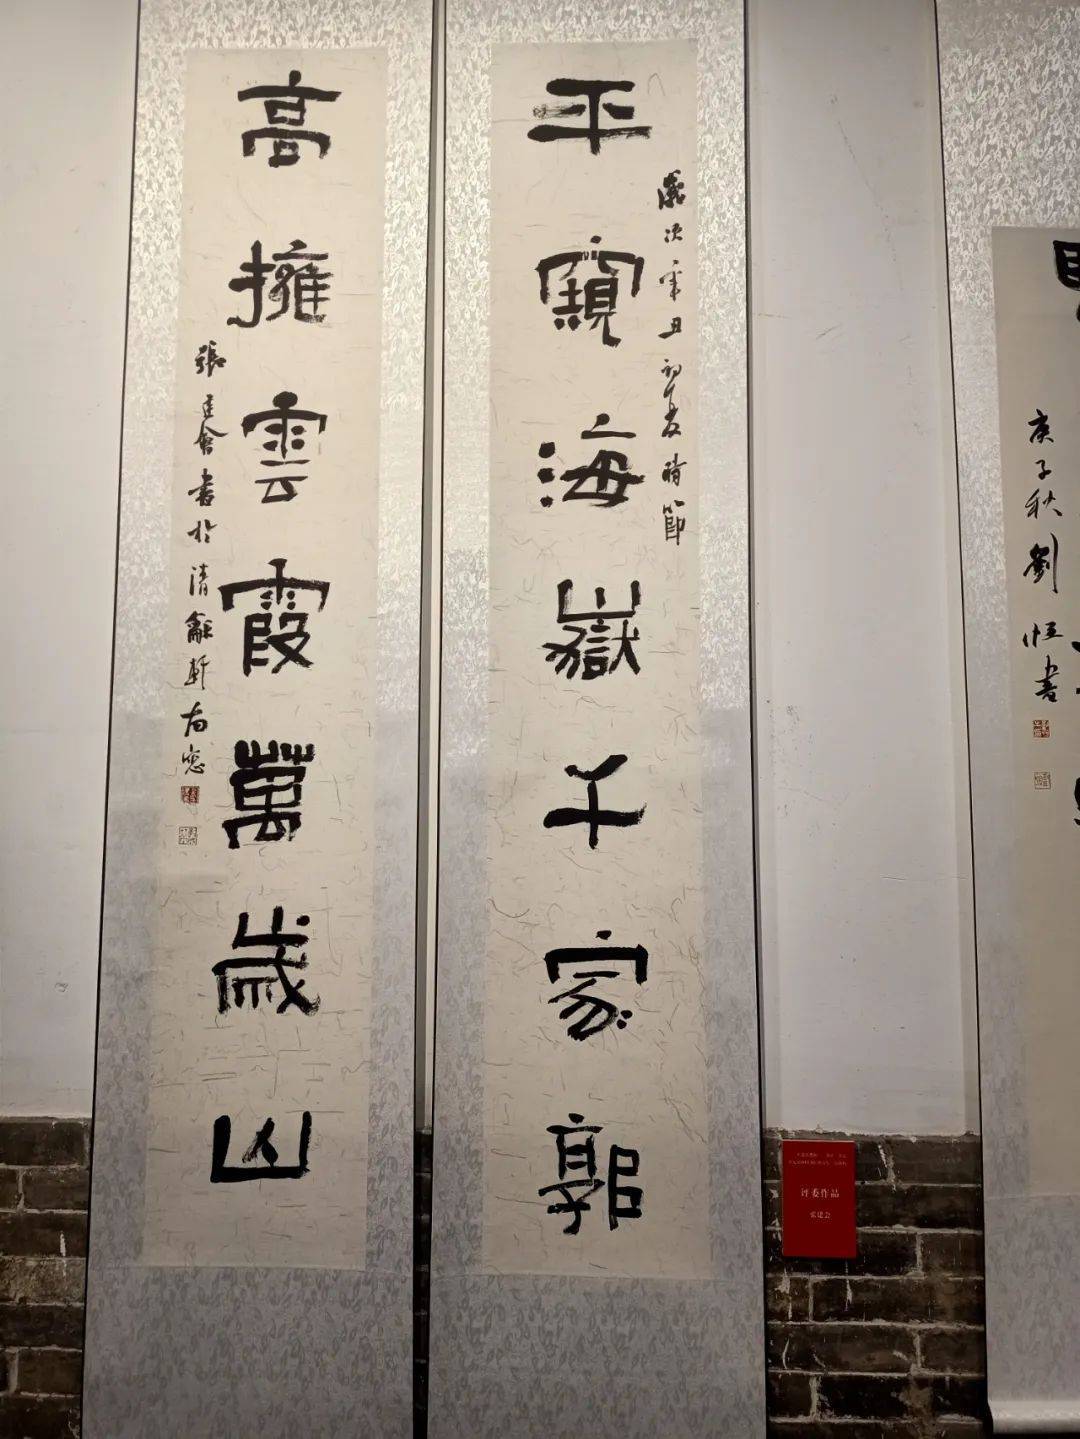 平窺海嶽千家郭
歲次辛丑初夏時節
高擁雲霞萬歲山
張建會書於清龢軒南窓
庚子秋劉恒書
评委作品
张建会